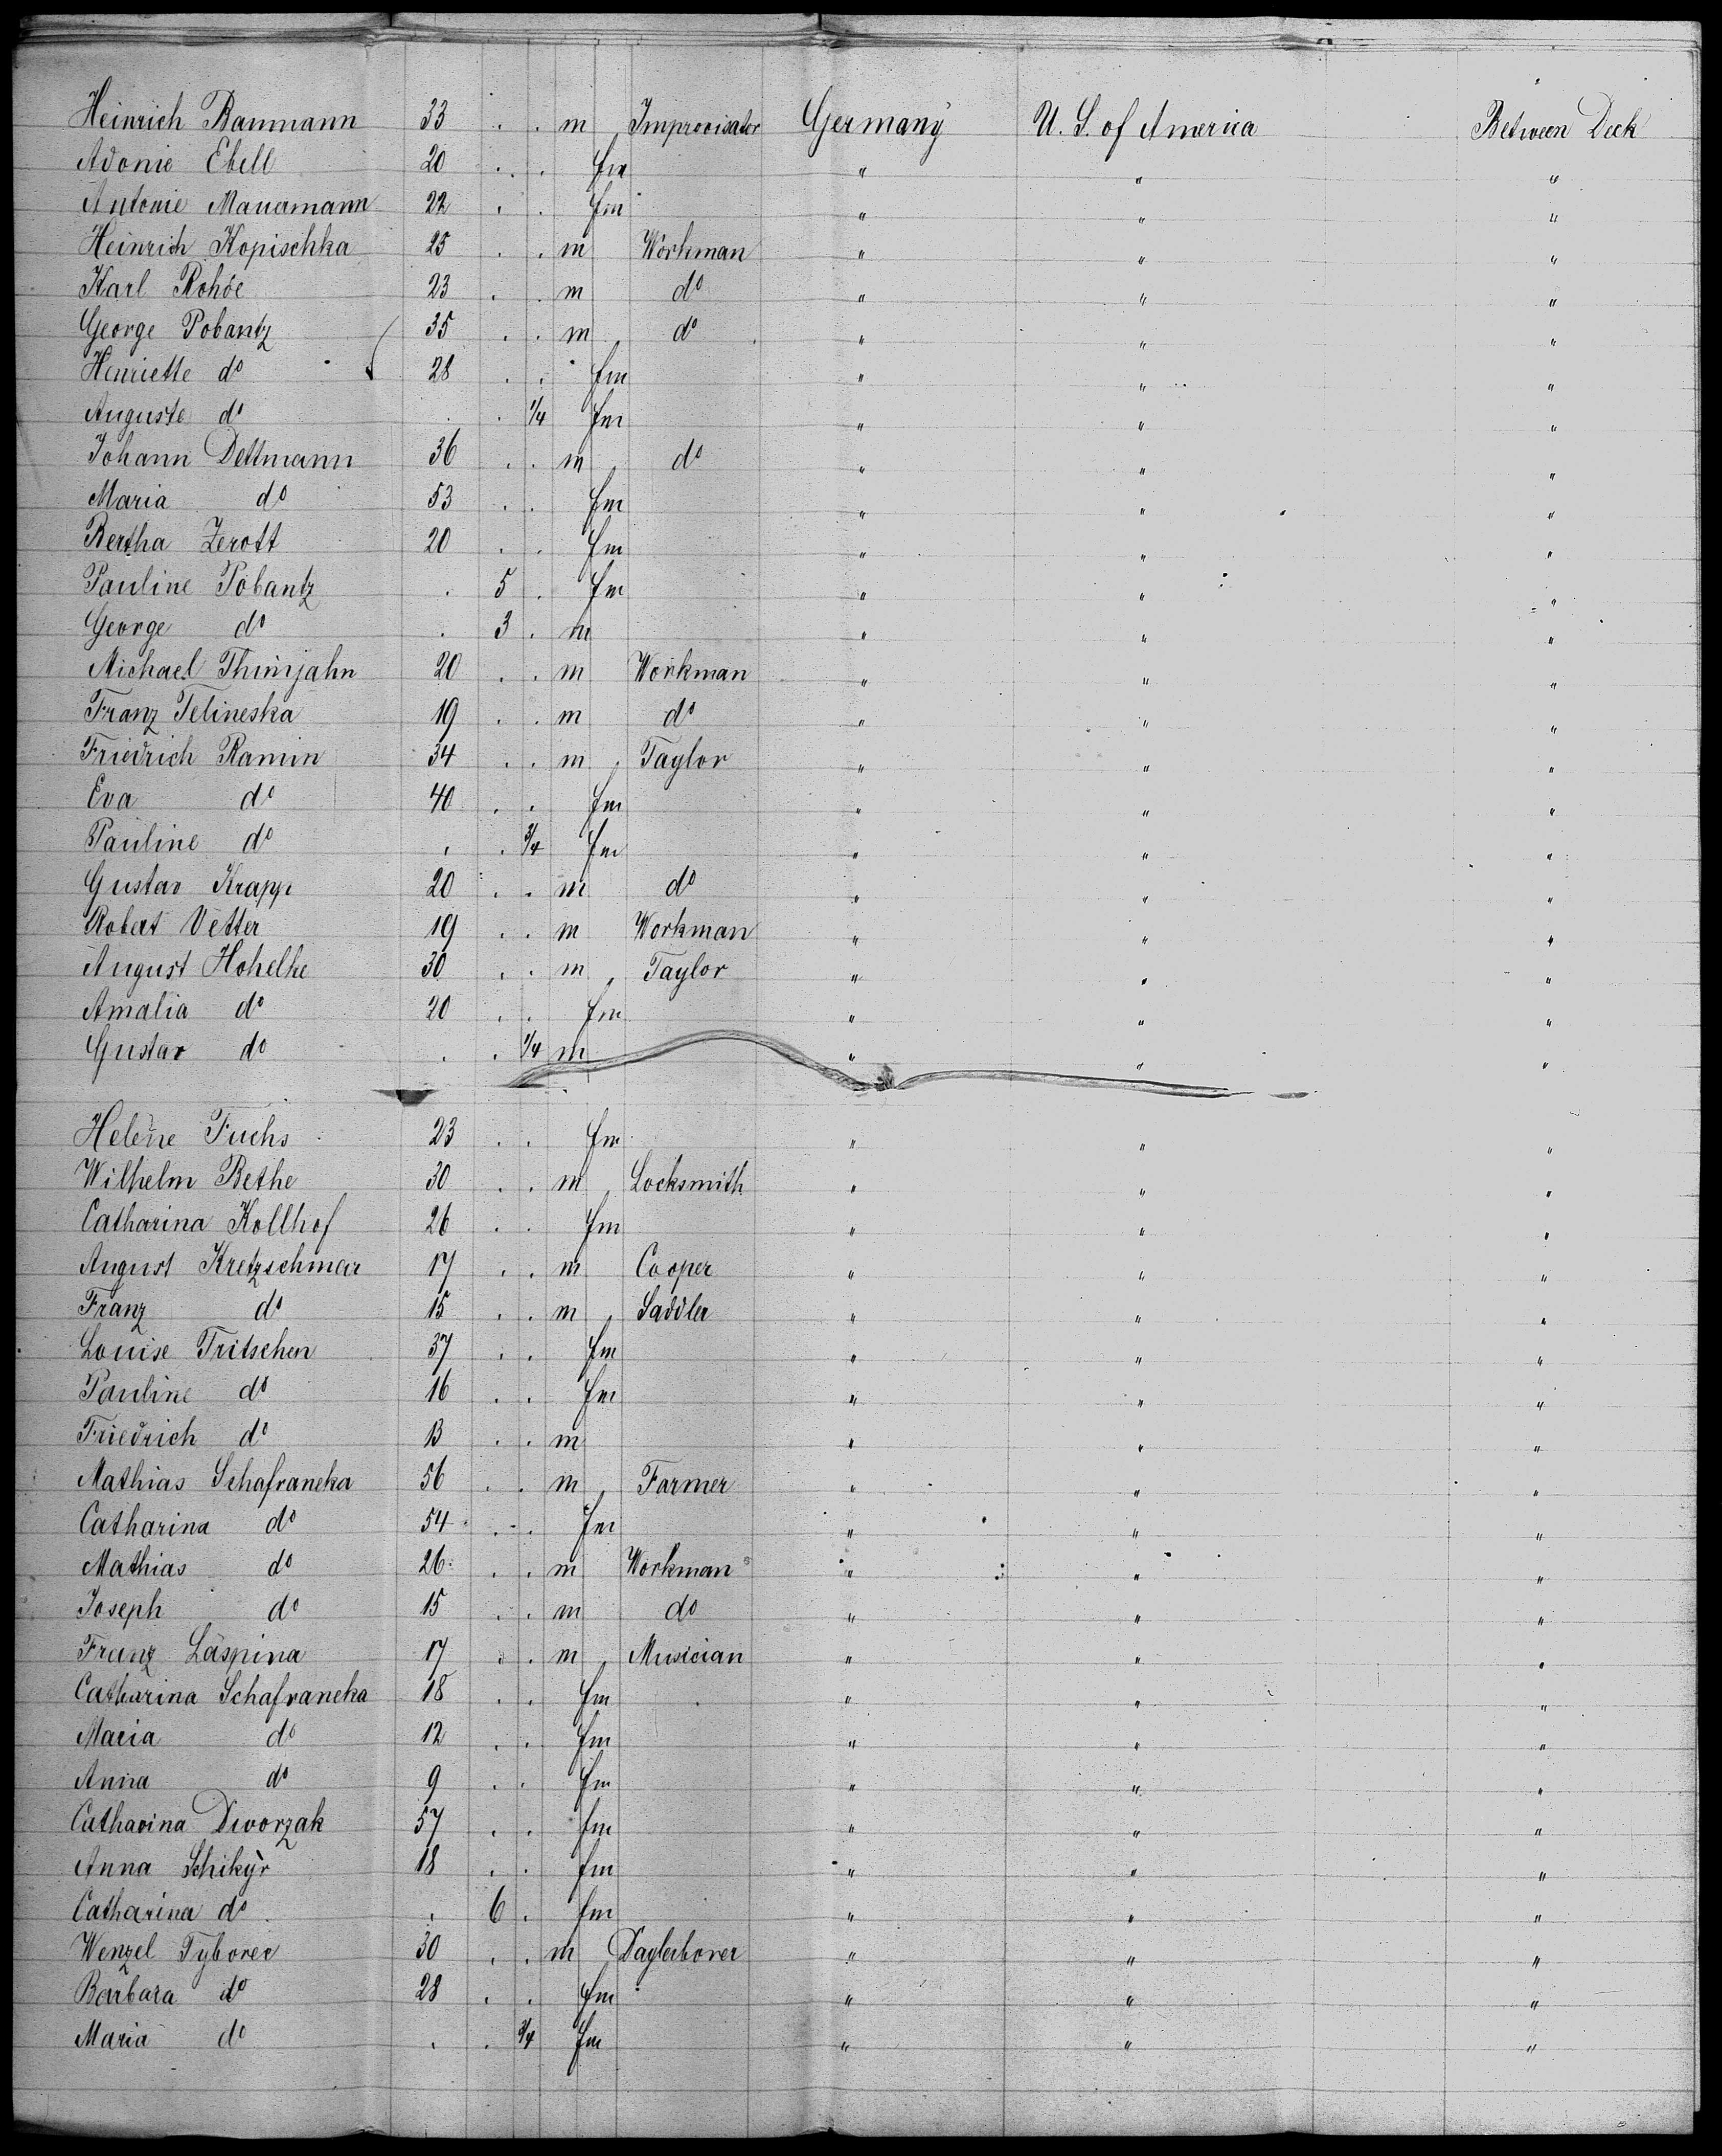 Heinrich Baumann 33 . . m Improvisator Germany U. S. of America Between Deck
Adonie Ebell 20 . . fm " " "
Antonie Mauermann 22 . . fm " " "
Heinrich Kopischka 25 . . m Workman " " "
Karl Rohde 23 . . m do " " "
George Pobantz 35 . . m do " " "
Henriette do 28 . . fm " " "
Auguste do . . 1/4 fm " " "
Johann Dettmann 36 . . m do " " "
Maria do 53 . . fm " " "
Bertha Zerott 20 . . fm " " "
Pauline Pobantz . 5 . fm " " "
George do . 3 . m " " "
Michael Thimjahn 20 . . m Workman " " "
Franz Telineska 19 . . m do " " "
Friedrich Ramin 34 . . m Taylor " " "
Eva do 40 . . fm " " "
Pauline do . . 3/4 fm " " "
Gustav Krapp 20 . . m do " " "
Robert Vetter 19 . . m Workman " " "
August Hohelhe 30 . . m Taylor " " "
Amalia do 20 . . fm " " "
Gustav do . . 1/4 m " " "
Helene Fuchs 23 . . fm " " "
Wilhelm Bethe 30 . . m Locksmith " " "
Catharina Kollhof 26 . . fm " " "
August Kretzschmar 17 . . m Cooper " " "
Franz do 15 . . m Saddler " " "
Louise Tritschen 37 . . fm " " "
Pauline do 16 . . fm " " "
Friedrich do 13 . . m " " "
Mathias Schafraneka 56 . . m Farmer " " "
Catharina do 54 . . fm " " "
Mathias do 26 . . m Workman " " "
Joseph do 15 . . m do " " "
Franz Laspina 17 . . m Musician " " "
Catharina Schafraneka 18 . . fm " " "
Maria do 12 . . fm " " "
Anna do 9 . . fm " " "
Catharina Dworzak 57 . . fm " " "
Anna Schikyr 18 . . fm " " "
Catharina do . 6 . fm " " "
Wenzel Tyborec 30 . . m Daylaborer " " "
Barbara do 28 . . fm " " "
Maria do . . 3/4 fm " " "